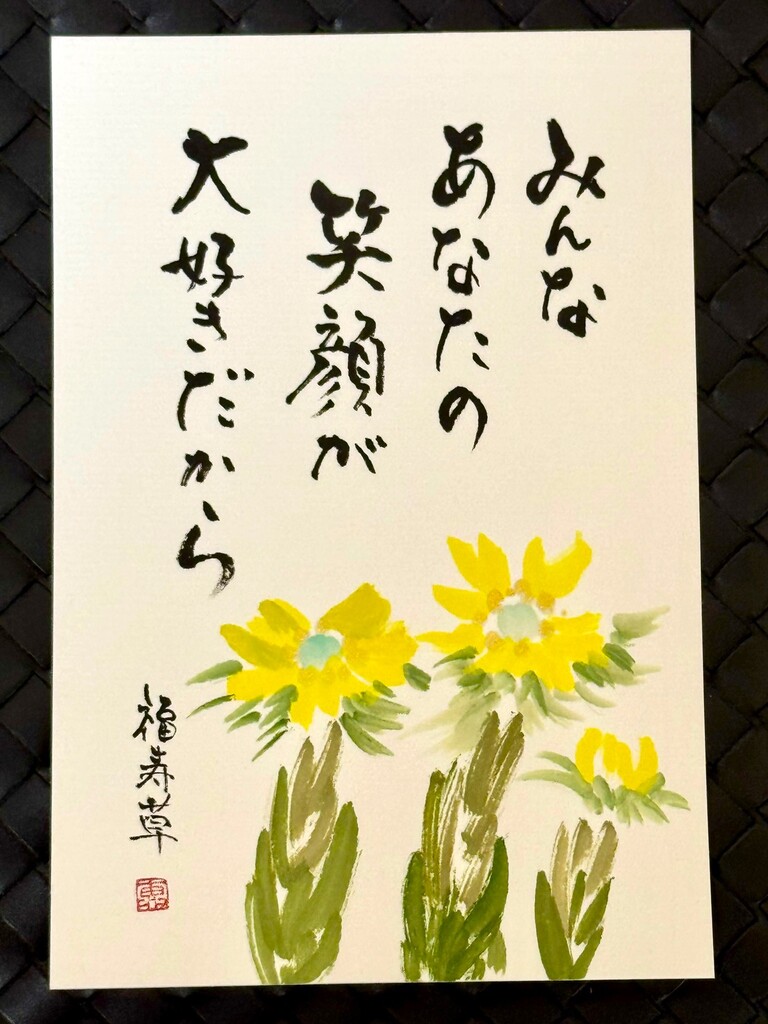 みんな
あなたの
笑顔が
大好きだから
福寿草